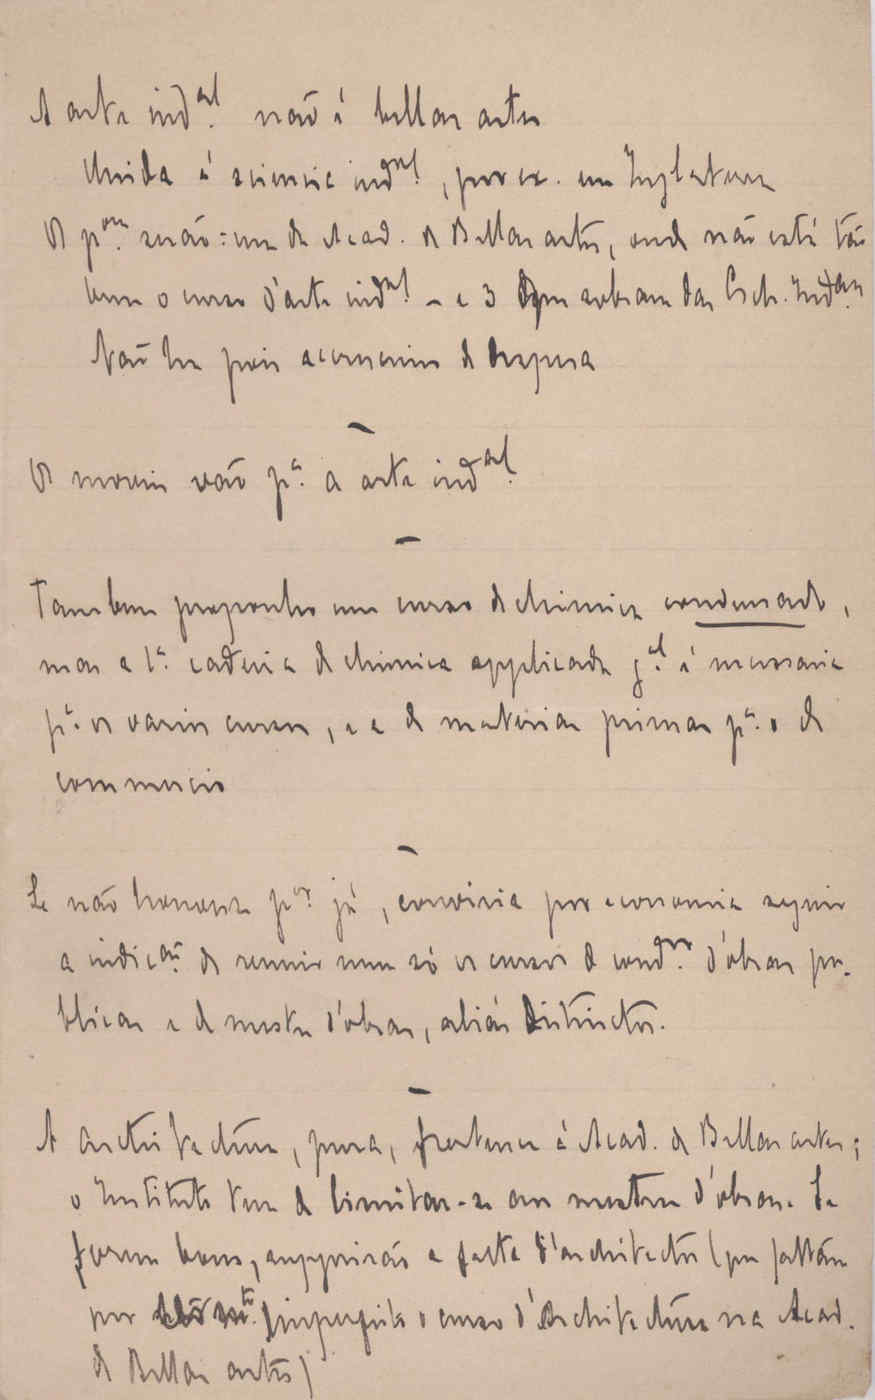 A arte ind.al não é bellas artes
Unida á sciencia ind.al, por ex. em Inglaterra
Os p.ores serão: um da Acad. de Bellas artes, onde não está tão
bem o curso d'arte ind.al – e 3 que sobram das Esch. Ind.aes
Não ha pois accrescimo de despesa
–
Os moveis vão p.a a arte ind.al
–
Tambem proponho um curso de chimica condensado,
mas a 1.a cadeira de chimica applicada g.al é necessaria
p.a os varios cursos, e a de materias primas p.a o de
commercio
–
Se não houvesse p.or já, conviria por economia seguir
a indic.ão de reunir num só os cursos de cond.or d'obras pu-
blicas e de mestre d'obras, aliás distinctos.
–
A architectura, pura, pertence á Acad. de Bellas artes;
o Instituto tem de limitar-se aos mestres d'obras. Se
forem bons, suppriráo a falta d'architectos (que faltam
por imperfeito o curso d'Architectura na Acad.
de Bellas artes)